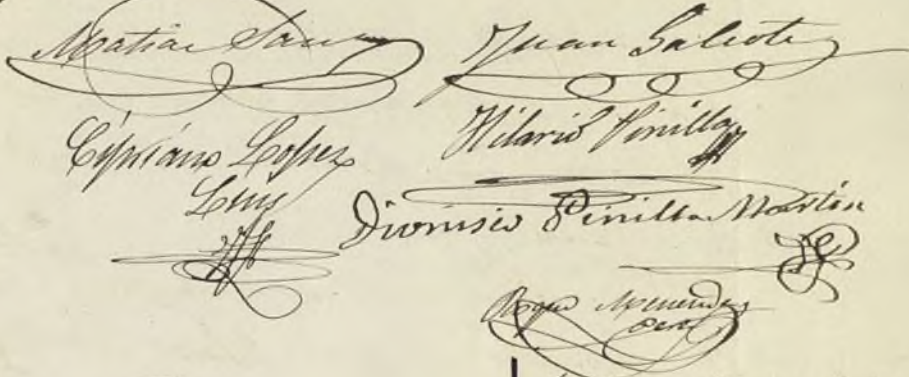 Matias Sanz
Juan Galiote
Cipriano Lopez
Hilario Pinilla
Dionisio Pinilla Martin
Roque Menendez